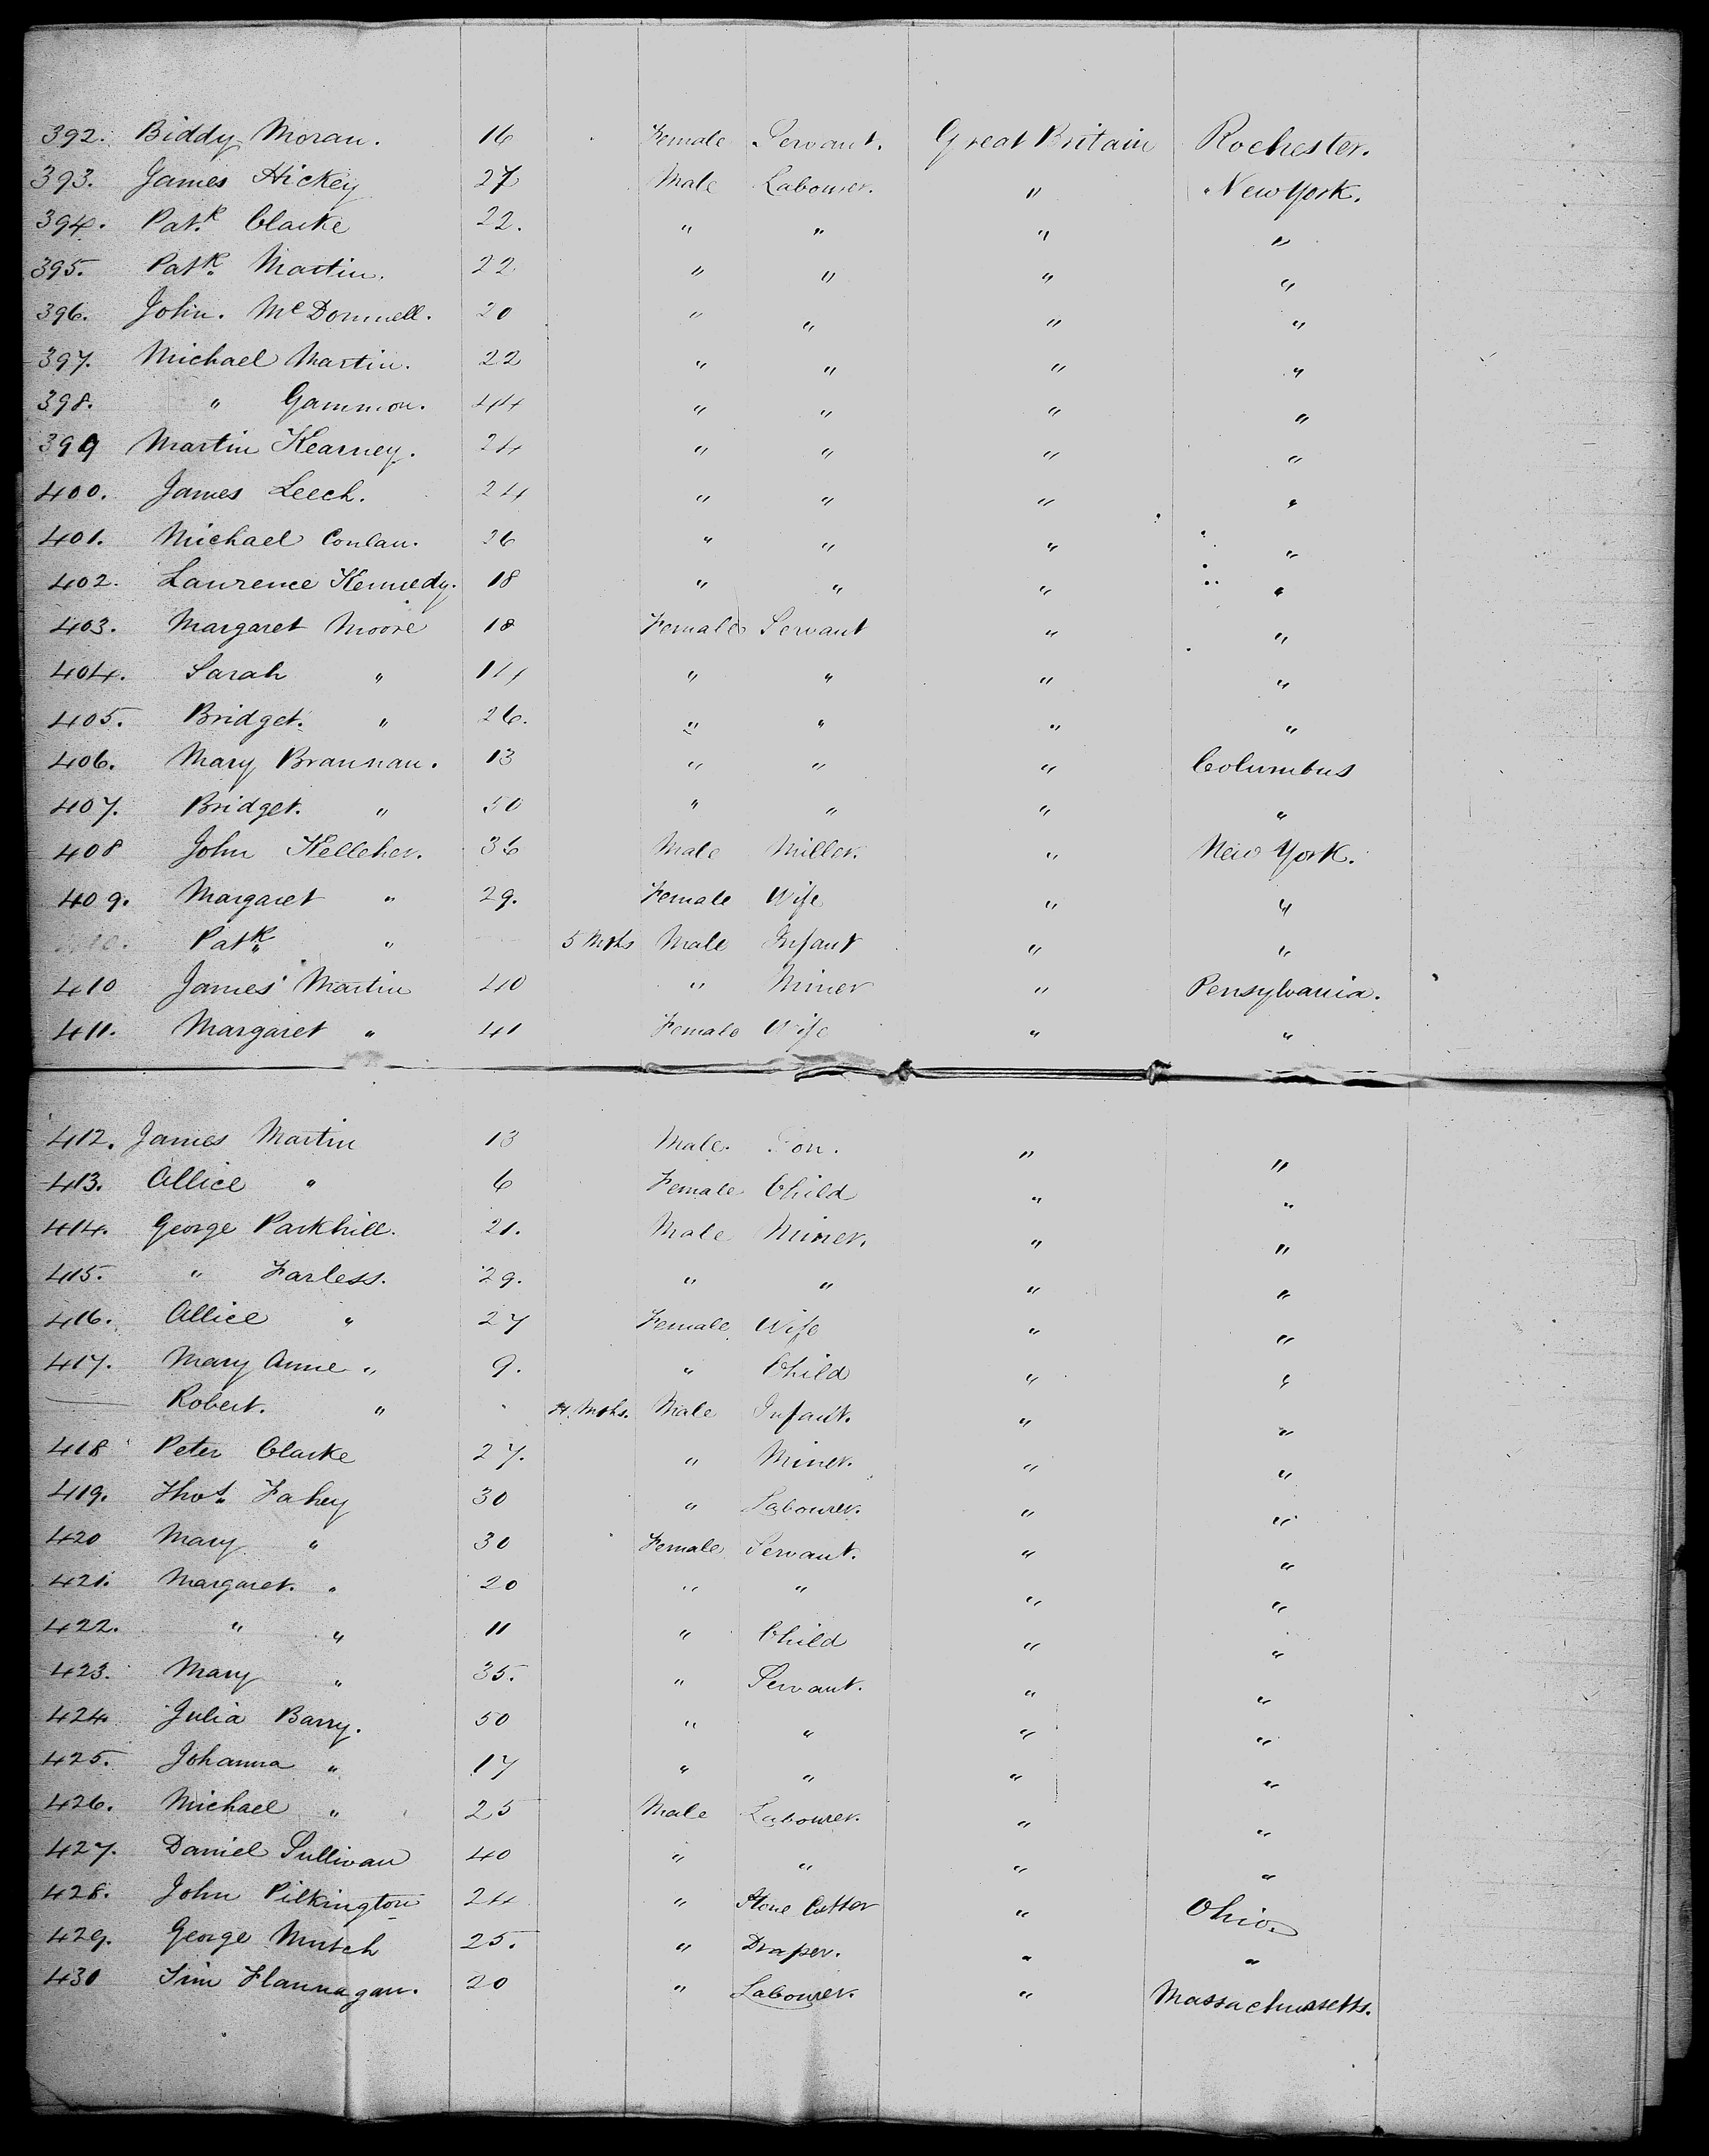 392. Biddy Moran. 16 Female Servant. Great Britain Rochester.
393. James Hickey 27 Male Labourer. " New York.
394. Patk. Clarke 22. " " " "
395. Patk. Martin. 22 " " " "
396. John. McDonnell. 20 " " " "
397. Michael Martin. 22 " " " "
398. " Gammon. 44 " " " "
399 Martin Kearney. 24 " " " "
400. James Leech. 24 " " " "
401. Michael Conlan. 26 " " " "
402. Laurence Kennedy. 18 " " " "
403. Margaret Moore 18 Female Servant " "
404. Sarah " 14 " " " "
405. Bridget. " 26. " " " "
406. Mary Brannan. 13 " " " Columbus
407. Bridget. " 50 " " " "
408 John Kelleher. 36 Male Miller. " New York.
409. Margaret " 29. Female Wife " "
Patk. " 5 Mths Male Infant " "
410 James Martin 40 " Miner " Pensylvania.
411. Margaret " 41 Female Wife " "
412. James Martin 13 Male. Son. " "
413. Allice " 6 Female Child " "
414. George Parkhill. 21. Male Miner. " "
415. " Farless. 29. " " " "
416. Allice " 27 Female Wife " "
417. Mary Anne " 9. " Child " "
— Robert. " Mths. Male Infant. " "
418 Peter Clarke 27. " Miner. " "
419. Thos. Fahey 30 " Labourer. " "
420 Mary " 30 Female Servant. " "
421. Margaret. " 20 " " " "
422. " " 11 " Child " "
423. Mary " 35. " Servant. " "
424 Julia Barry. 50 " " " "
425. Johanna " 17 " " " "
426. Michael " 25 Male Labourer. " "
427. Daniel Sullivan 40 " " " "
428. John Pilkington 24 " Stone Cutter " Ohio.
429. George Mutch 25. " Draper. " "
430 Tim Flannagan. 20 " Labourer. " Massachussetts.